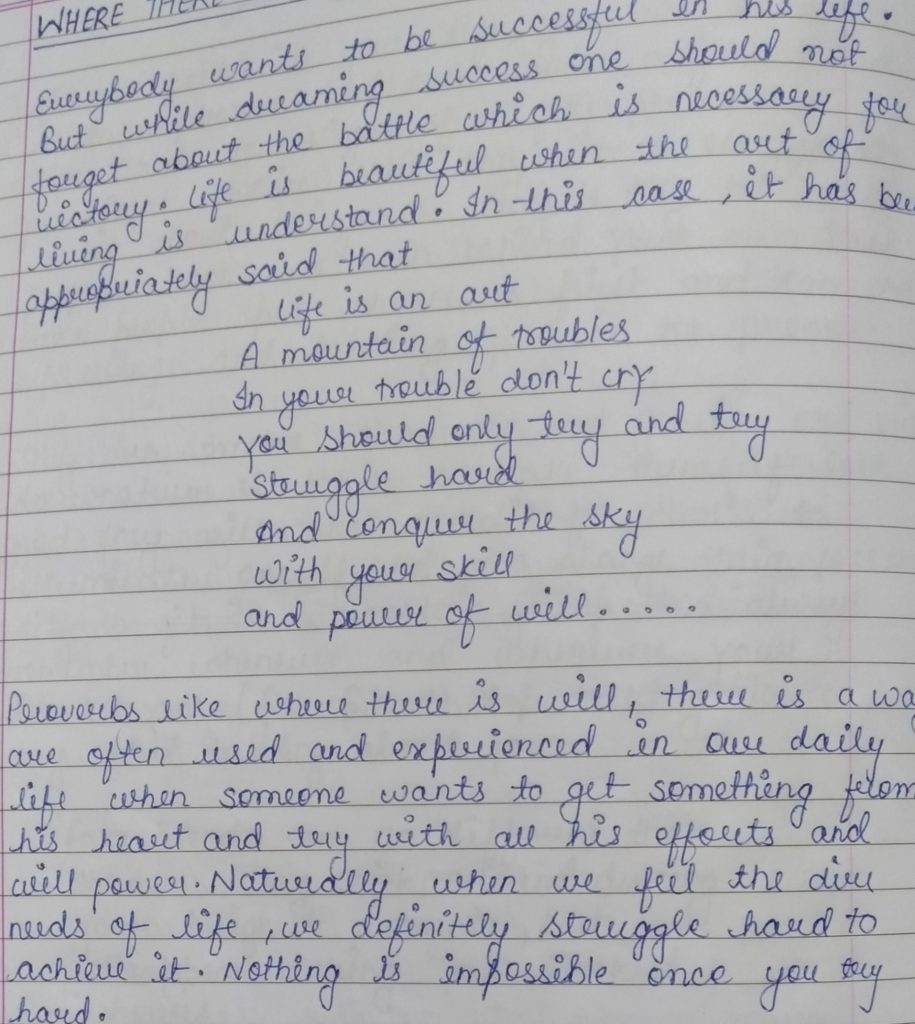 WHERE THERE
Everybody wants to be successful in his life.
But while dreaming success one should not
forget about the battle which is necessary for
victory. life is beautiful when the art of
living is understand. In this case, it has be
appropriately said that
life is an art
A mountain of troubles
In your trouble don't cry
You should only try and try
struggle hard
And conquer the sky
With your skill
and power of will.....
Proverbs like where there is will, there is a wa
are often used and experienced in our daily
life when someone wants to get something from
his heart and try with all his efforts and
will power. Naturally when we feel the dire
needs of life, we definitely struggle hard to
achieve it. Nothing is impossible once you try
hard.